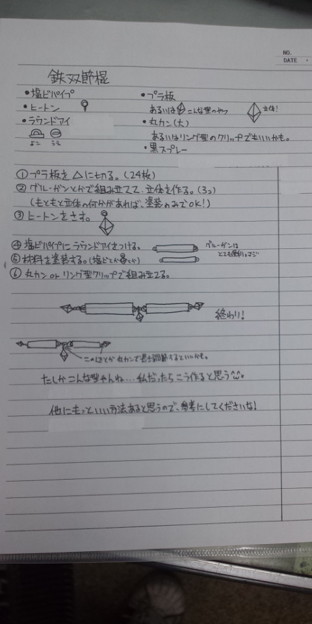 NO.
DATE
鉄双節棍
・塩ビパイプ
・プラ板
・ヒートン
あるいは こんな型のやつ
立体!
・ラウンドアイ
・丸カン(大)
よこ うら
あるいはリング型のクリップでもいいかも。
・黒スプレー
① プラ板を△に切る。(24枚)
② グルーガンとかで組み立てて 立体を作る。(3コ)
(もともと立体の何かがあれば、塗装のみでOK!)
③ ヒートンをさす。
④ 塩ビパイプにラウンドアイをつける。
グルーガンは
⑤ 材料を塗装する。
⑥ 丸カン or リング型クリップで組み立てる。
終わり!
たしかこんな型やんね… 私だったらこう作ると思う
他にもっといい方法あると思うので、参考にしてくださいな!